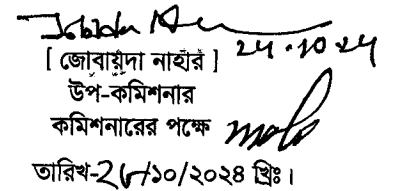 ২৪.১০.২৪
[ জোবায়দা নাহার ]
উপ-কমিশনার
কমিশনারের পক্ষে
তারিখ-২৪/১০/২০২৪ খ্রিঃ।